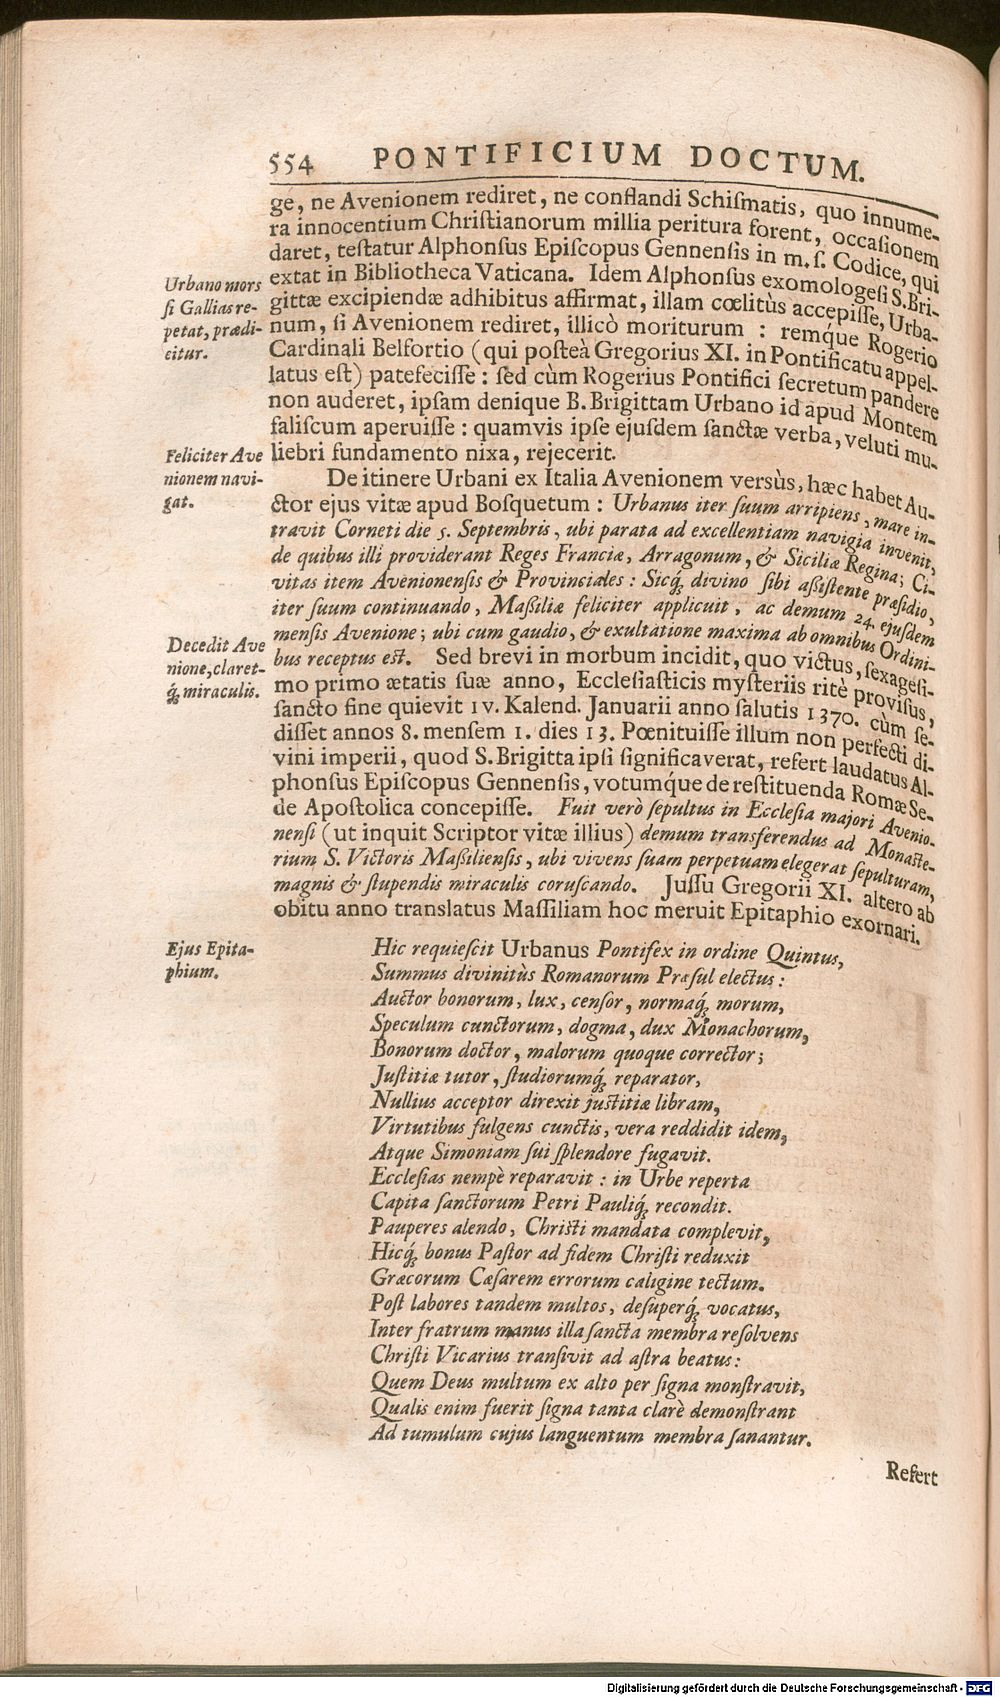 554 PONTIFICIUM DOCTUM.
ge, ne Avenionem rediret, ne conflandi Schiſmatis, quo innume-
ra innocentium Chriſtianorum millia peritura forent, occaſionem
daret, teſtatur Alphonſus Epiſcopus Gennenſis in m. ſ. Codice, qui
extat in Bibliotheca Vaticana. Idem Alphonſus exomologeſi S. Bri-
gittæ excipiendæ adhibitus affirmat, illam cœlitùs accepiſſe, Urba-
num, ſi Avenionem rediret, illicò moriturum : remq́ue Rogerio
Cardinali Belfortio (qui poſteà Gregorius XI. in Pontificatu appel-
latus eſt) patefeciſſe : ſed cùm Rogerius Pontifici ſecretum pandere
non auderet, ipſam denique B. Brigittam Urbano id apud Montem
faliſcum aperuiſſe : quamvis ipſe ejuſdem ſanctæ verba, veluti mu-
liebri fundamento nixa, rejecerit.
Urbano mors
ſi Gallias re-
petat, prædi-
citur.
De itinere Urbani ex Italia Avenionem versùs, hæc habet Au-
ctor ejus vitæ apud Boſquetum : Urbanus iter ſuum arripiens, mare in-
travit Corneti die 5. Septembris, ubi parata ad excellentiam navigia invenit,
de quibus illi providerant Reges Franciæ, Arragonum, & Siciliæ Regina; Ci-
vitas item Avenionenſis & Provinciales : Sicq́; divino ſibi aßiſtente præſidio,
iter ſuum continuando, Maßiliæ feliciter applicuit, ac demum 24. ejuſdem
menſis Avenione; ubi cum gaudio, & exultatione maxima ab omnibus Ordini-
bus receptus eſt. Sed brevi in morbum incidit, quo victus, ſexageſi-
mo primo ætatis ſuæ anno, Eccleſiaſticis myſteriis ritè proviſus,
ſancto fine quievit IV. Kalend. Januarii anno ſalutis 1370. cùm ſe-
diſſet annos 8. menſem 1. dies 13. Pœnituiſſe illum non perfecti di-
vini imperii, quod S. Brigitta ipſi ſignificaverat, refert laudatus Al-
phonſus Epiſcopus Gennenſis, votumq́ue de reſtituenda Romæ Se-
de Apoſtolica concepiſſe. Fuit verò ſepultus in Eccleſia majori Avenio-
nenſi (ut inquit Scriptor vitæ illius) demum transferendus ad Monaſte-
rium S. Victoris Maßilienſis, ubi vivens ſuam perpetuam elegerat ſepulturam,
magnis & ſtupendis miraculis coruſcando. Juſſu Gregorii XI. altero ab
obitu anno translatus Maſſiliam hoc meruit Epitaphio exornari.
Feliciter Ave
nionem navi-
gat.
Decedit Ave
nione, claret-
q́; miraculis.
Ejus Epita-
phium.
Hic requieſcit Urbanus Pontifex in ordine Quintus,
Summus divinitùs Romanorum Præſul electus :
Auctor bonorum, lux, cenſor, normaq́; morum,
Speculum cunctorum, dogma, dux Monachorum,
Bonorum doctor, malorum quoque corrector;
Juſtitiæ tutor, ſtudiorumq́; reparator,
Nullius acceptor direxit juſtitiæ libram,
Virtutibus fulgens cunctis, vera reddidit idem,
Atque Simoniam ſui ſplendore fugavit.
Eccleſias nempè reparavit : in Urbe reperta
Capita ſanctorum Petri Pauliq́; recondit.
Pauperes alendo, Chriſti mandata complevit,
Hicq́; bonus Paſtor ad fidem Chriſti reduxit
Græcorum Cæſarem errorum caligine tectum.
Poſt labores tandem multos, deſuperq́; vocatus,
Inter fratrum manus illa ſancta membra reſolvens
Chriſti Vicarius tranſivit ad aſtra beatus :
Quem Deus multum ex alto per ſigna monſtravit,
Qualis enim fuerit ſigna tanta clarè demonſtrant
Ad tumulum cujus languentum membra ſanantur.
Refert
Digitalisierung gefördert durch die Deutsche Forschungsgemeinschaft - DFG